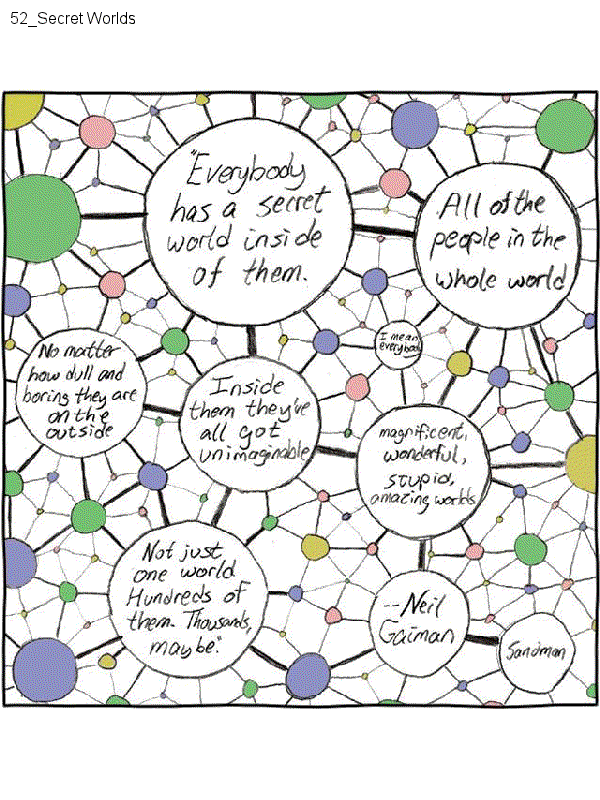 52_Secret Worlds
"Everybody
has a secret
world inside
of them.
All of the
people in the
whole world
I mean
everybody
No matter
how dull and
boring they are
on the
outside
Inside
them they've
all got
unimaginable
magnificent,
wonderful,
stupid,
amazing worlds
Not just
one world.
Hundreds of
them. Thousands,
maybe."
--Neil
Gaiman
Sandman